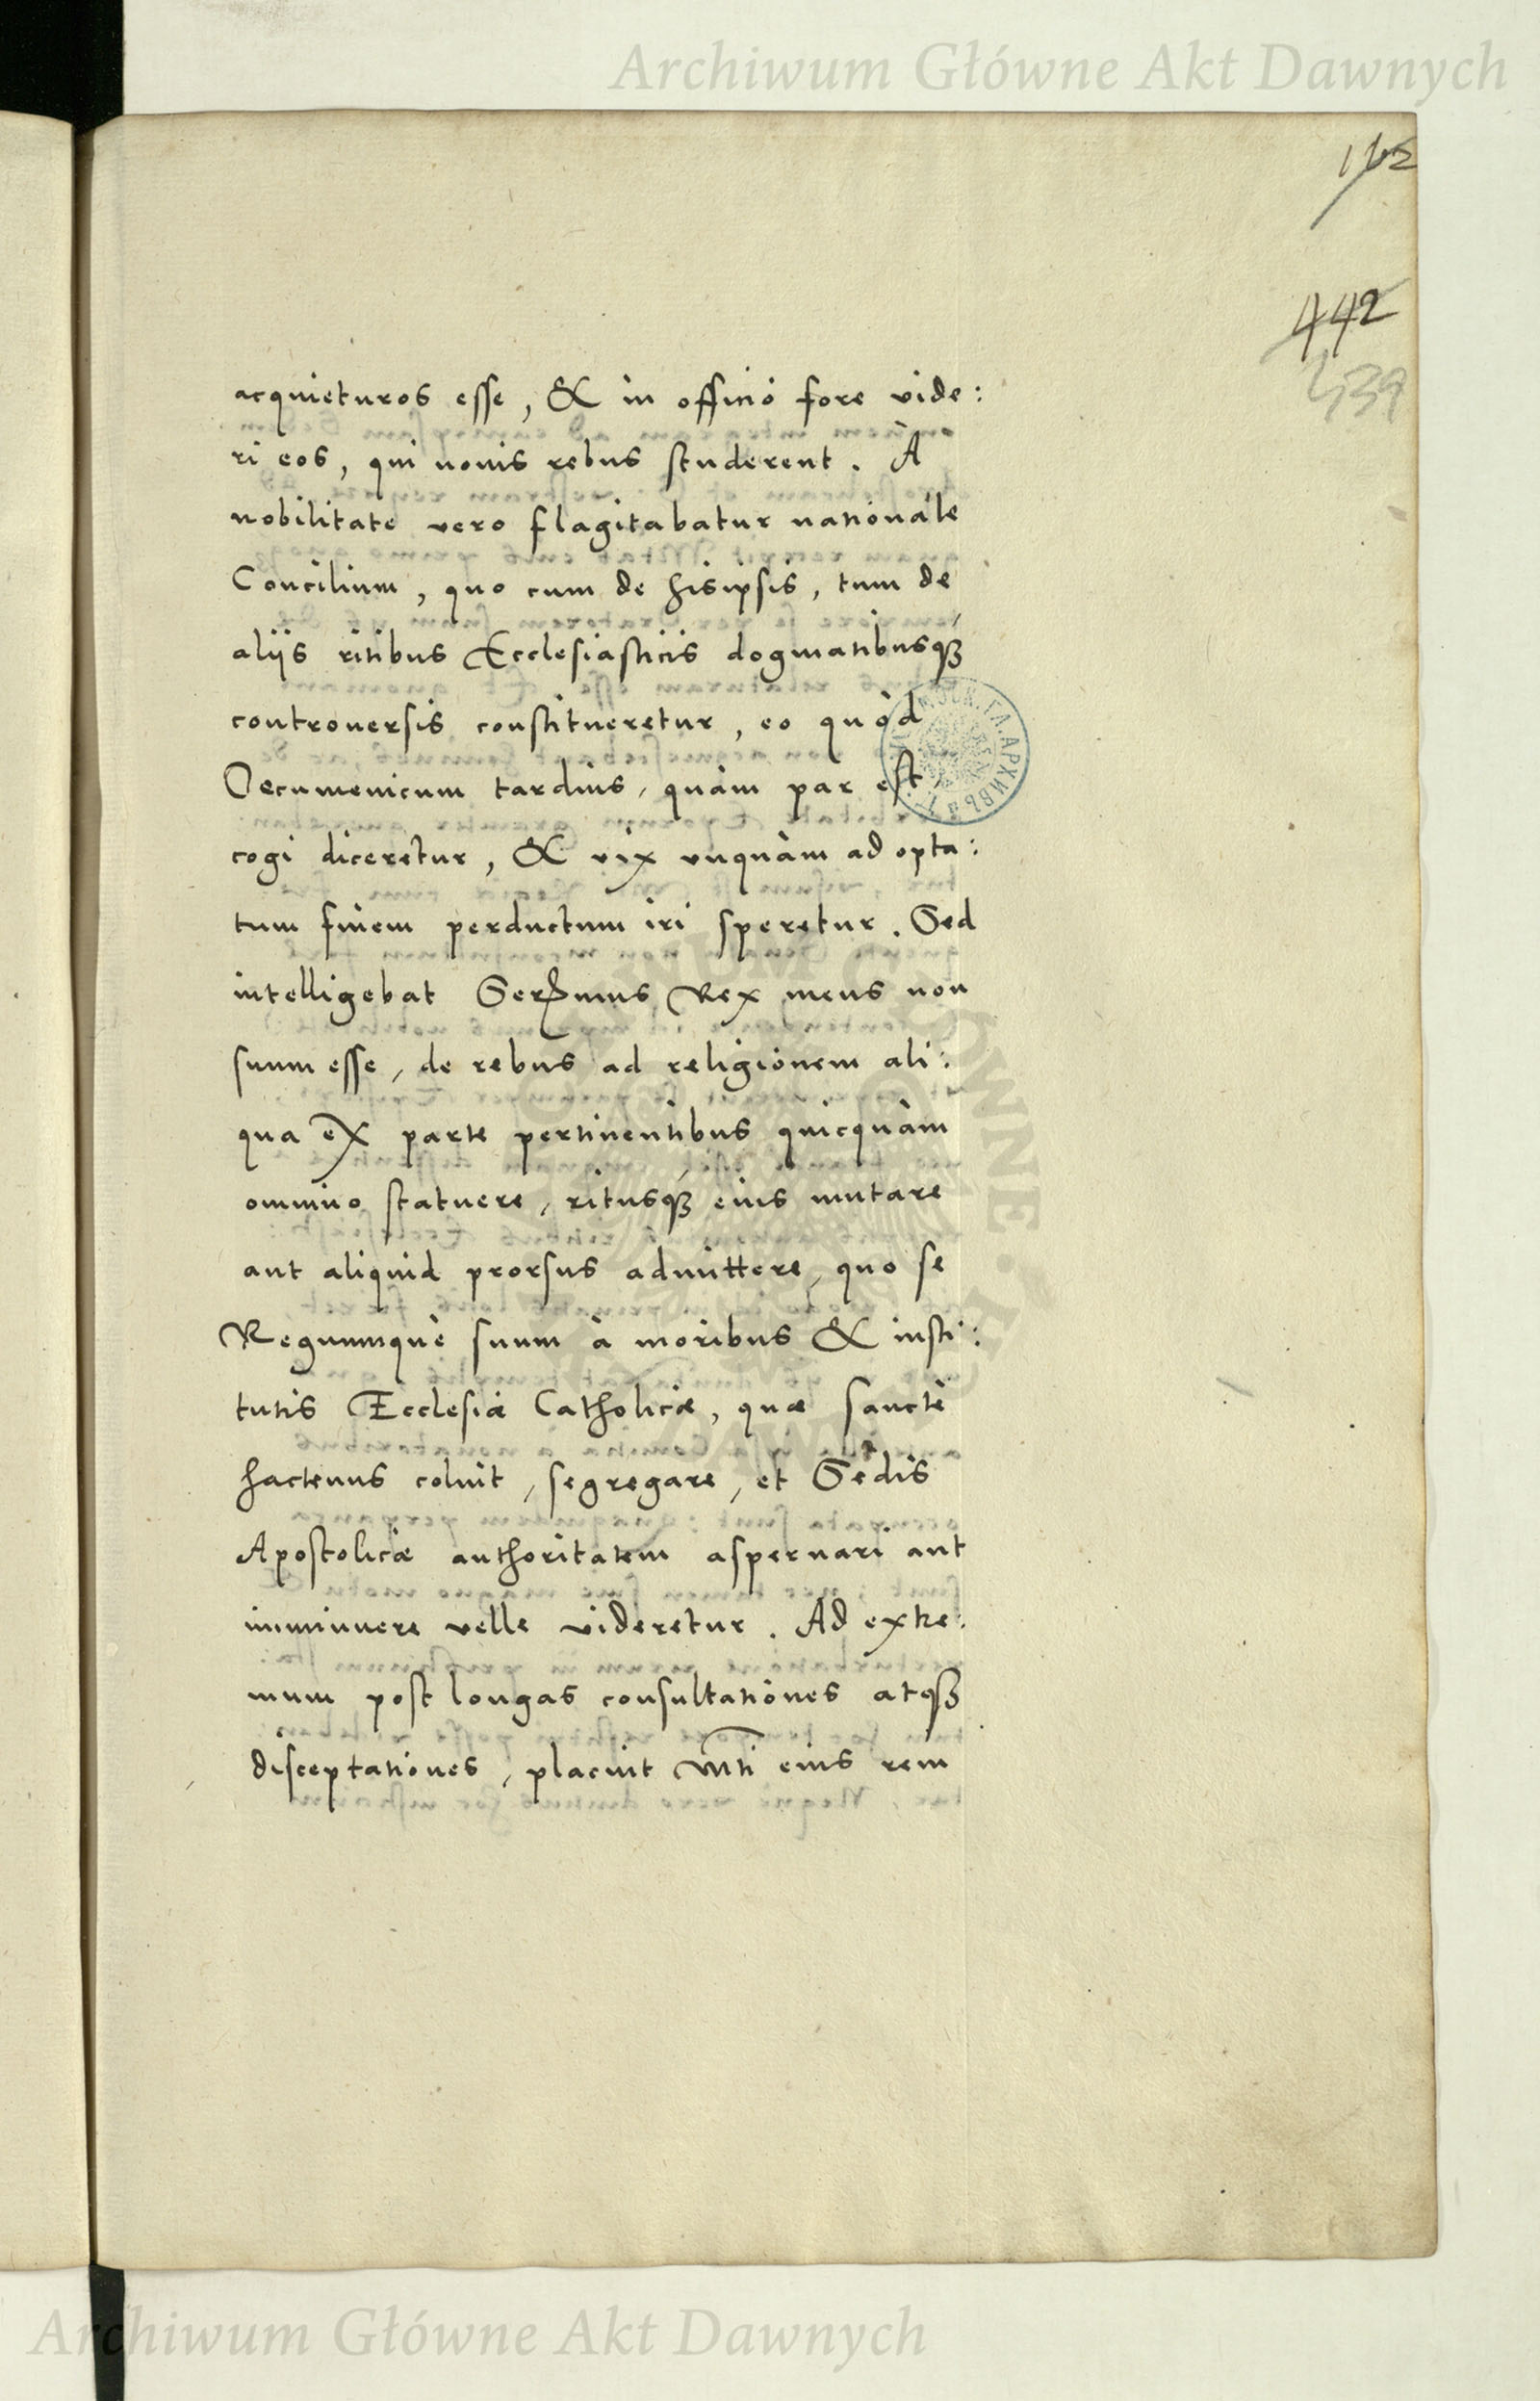 Archiwum Główne Akt Dawnych
442
439
acquieturos esse, & in officio fore vide:
ri eos, qui nouis rebus studerent. À
nobilitate vero flagitabatur nationale
Concilium, quo cum de hisipsis, tum de
aliis ritibus Ecclesiasticis dogmatibusq3
controuersis constitueretur, eo quòd
Oecumenicum tardius, quàm par est,
cogi diceretur, & vix vnquàm ad opta:
tum finem perductum iri speretur. Sed
intelligebat Sermus Rex meus non
suum esse, de rebus ad religionem ali:
qua ex parte pertinentibus quicquàm
omnino statuere, ritusq3 eius mutare
aut aliquid prorsus admittere, quo se
Regnumquè suum à moribus & insti:
tutis Ecclesiæ Catholicæ, quæ sanctè
hactenus coluit, segregare, et Sedis
Apostolicæ authoritatem aspernari aut
imminuere velle videretur. Ad extre:
mum post longas consultationes atq3
disceptationes, placuit Mti eius rem
Archiwum Główne Akt Dawnych